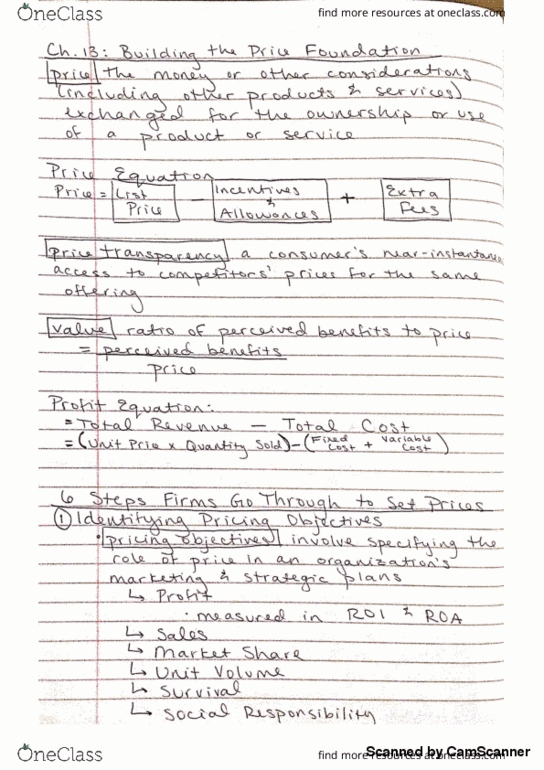 OneClass
find more resources at oneclass.com
Ch. 13: Building the Price Foundation
price the money or other considerations
(including other products & services)
exchanged for the ownership or use
of a product or service
Price Equation
Price = List Price − Incentives & Allowances + Extra Fees
price transparency a consumer's near-instantaneous
access to competitors' prices for the same
offering
value ratio of perceived benefits to price
= perceived benefits
price
Profit Equation:
= Total Revenue − Total Cost
= (Unit Price x Quantity Sold) − (Fixed Cost + Variable Cost)
6 Steps Firms Go Through to Set Prices
① Identifying Pricing Objectives
• pricing objectives involve specifying the
role of price in an organization's
marketing & strategic plans
↳ Profit
• measured in ROI & ROA
↳ Sales
↳ Market Share
↳ Unit Volume
↳ Survival
↳ Social Responsibility
OneClass
find more resources at oneclass.com
Scanned by CamScanner